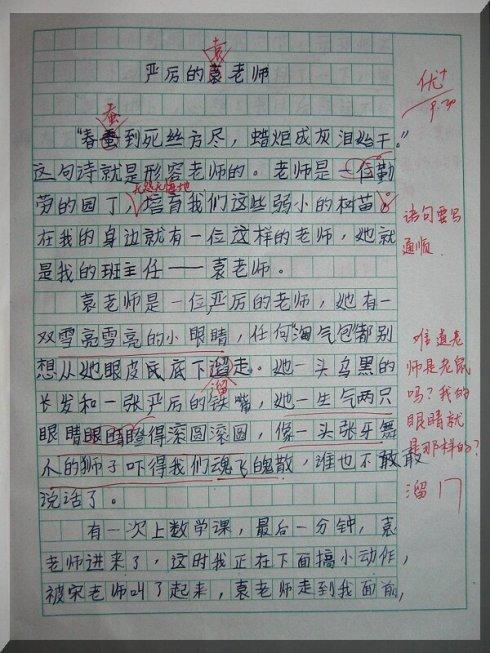 袁
严厉的袁老师
优+
9.30
蚕
"春蚕到死丝方尽，蜡炬成灰泪始干。"
这句诗就是形容老师的。老师是一位勤
无怨无悔地
劳的园丁，培育我们这些弱小的树苗。
语句要写
在我的身边就有一位这样的老师，她就
通顺
是我的班主任——袁老师。
袁老师是一位严厉的老师，她有一
双雪亮雪亮的小眼睛，任何"淘气包"都别
想从她眼皮底下溜走。她一头乌黑的
溜
长发和一张严厉的铁嘴，她一生气两只
眼睛眼睛瞪得滚圆滚圆，像一头张牙舞
爪的狮子吓得我们魂飞魄散，谁也不敢敢
说话了。
难道老
师是老鼠
吗？我的
眼睛就
是那样的？
溜
有一次上数学课，最后一分钟，袁
老师进来了，这时我正在下面搞小动作，
被宋老师叫了起来，袁老师走到我面前，